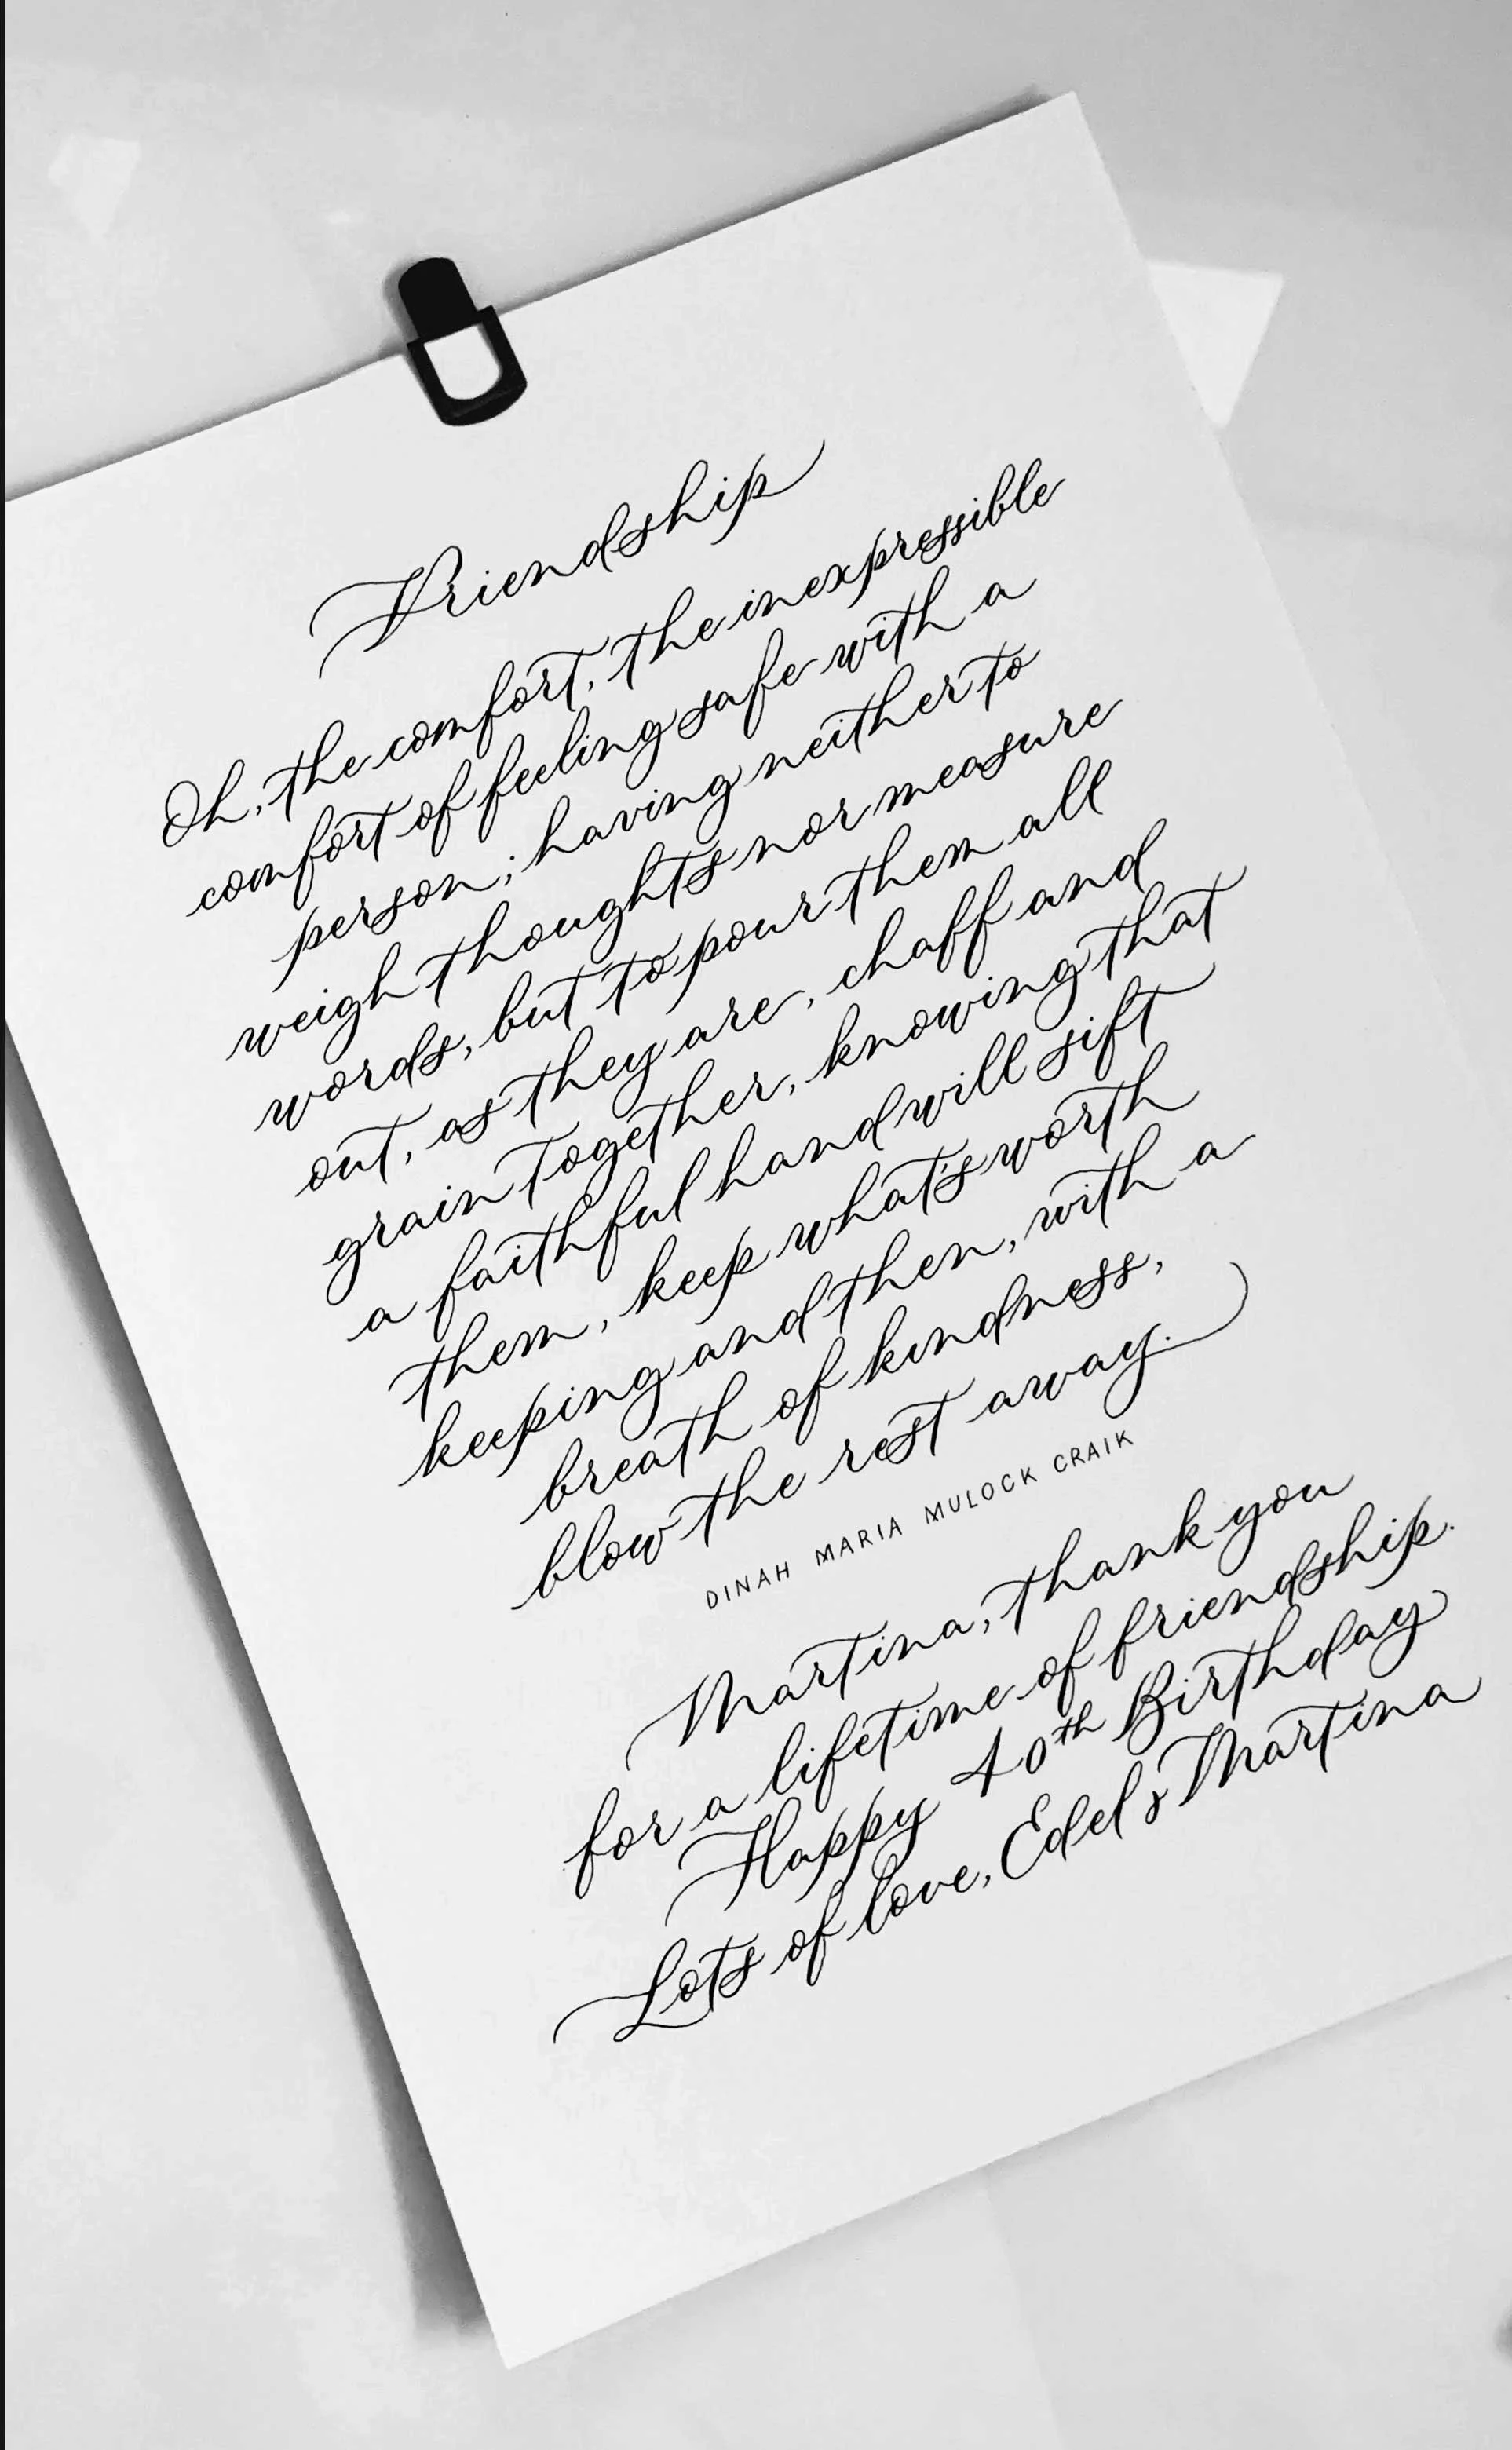 Friendship
Oh, the comfort, the inexpressible
comfort of feeling safe with a
person; having neither to
weigh thoughts nor measure
words, but to pour them all
out, as they are, chaff and
grain together, knowing that
a faithful hand will sift
them, keep what's worth
keeping and then, with a
breath of kindness,
blow the rest away.
DINAH MARIA MULOCK CRAIK
Martina, thank you
for a lifetime of friendship.
Happy 40th Birthday
Lots of love, Edel & Martina